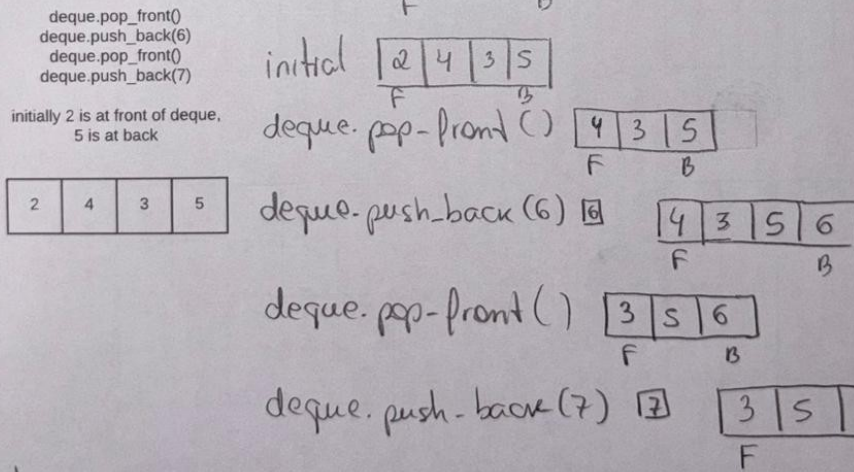 deque.pop_front()
deque.push_back(6)
deque.pop_front()
deque.push_back(7)
initially 2 is at front of deque,
5 is at back
2 4 3 5
F B
initial 2 4 3 5
F B
deque.pop-front() 4 3 5
F B
deque.push_back(6) 6 4 3 5 6
F B
deque.pop-front() 3 5 6
F B
deque.push-back(7) 7 3 5
F